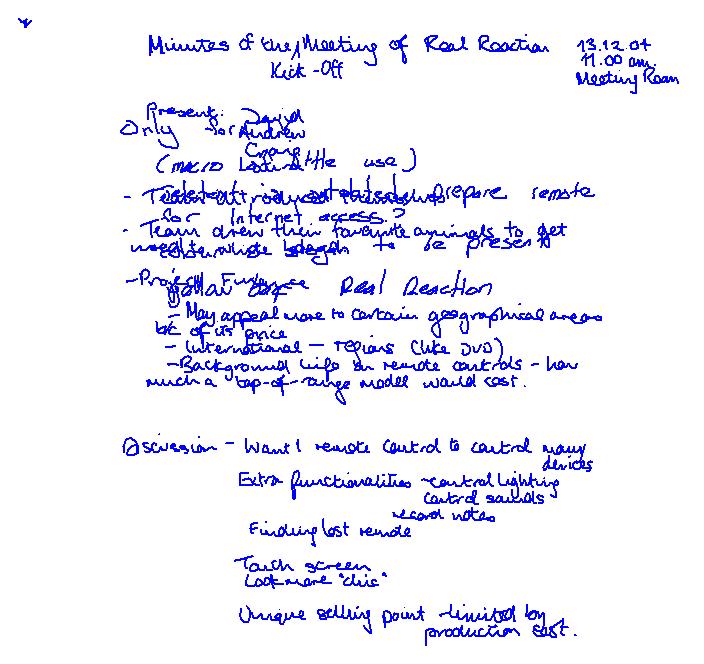 Minutes of the Meeting of Real Reaction 13.12.04
Kick-Off 11.00 am.
Meeting Room
Present: David
Only for Andrew
Craig
(macro little use)
- Team introduced themselves prepare remote
for Internet access?
- Team drew their favourite animals to get
to be present
- Project Finance
Real Reaction
- May appeal more to certain geographical areas
b/c of its price
- International - regions (like DVD)
- Background info on remote controls - how
much a top-of-range model would cost.
Discussion - Want 1 remote control to control many
devices
Extra functionalities - control lighting
control sounds
record notes
Finding lost remote
Touch screen
Look more "chic"
Unique selling point - limited by
production cost.